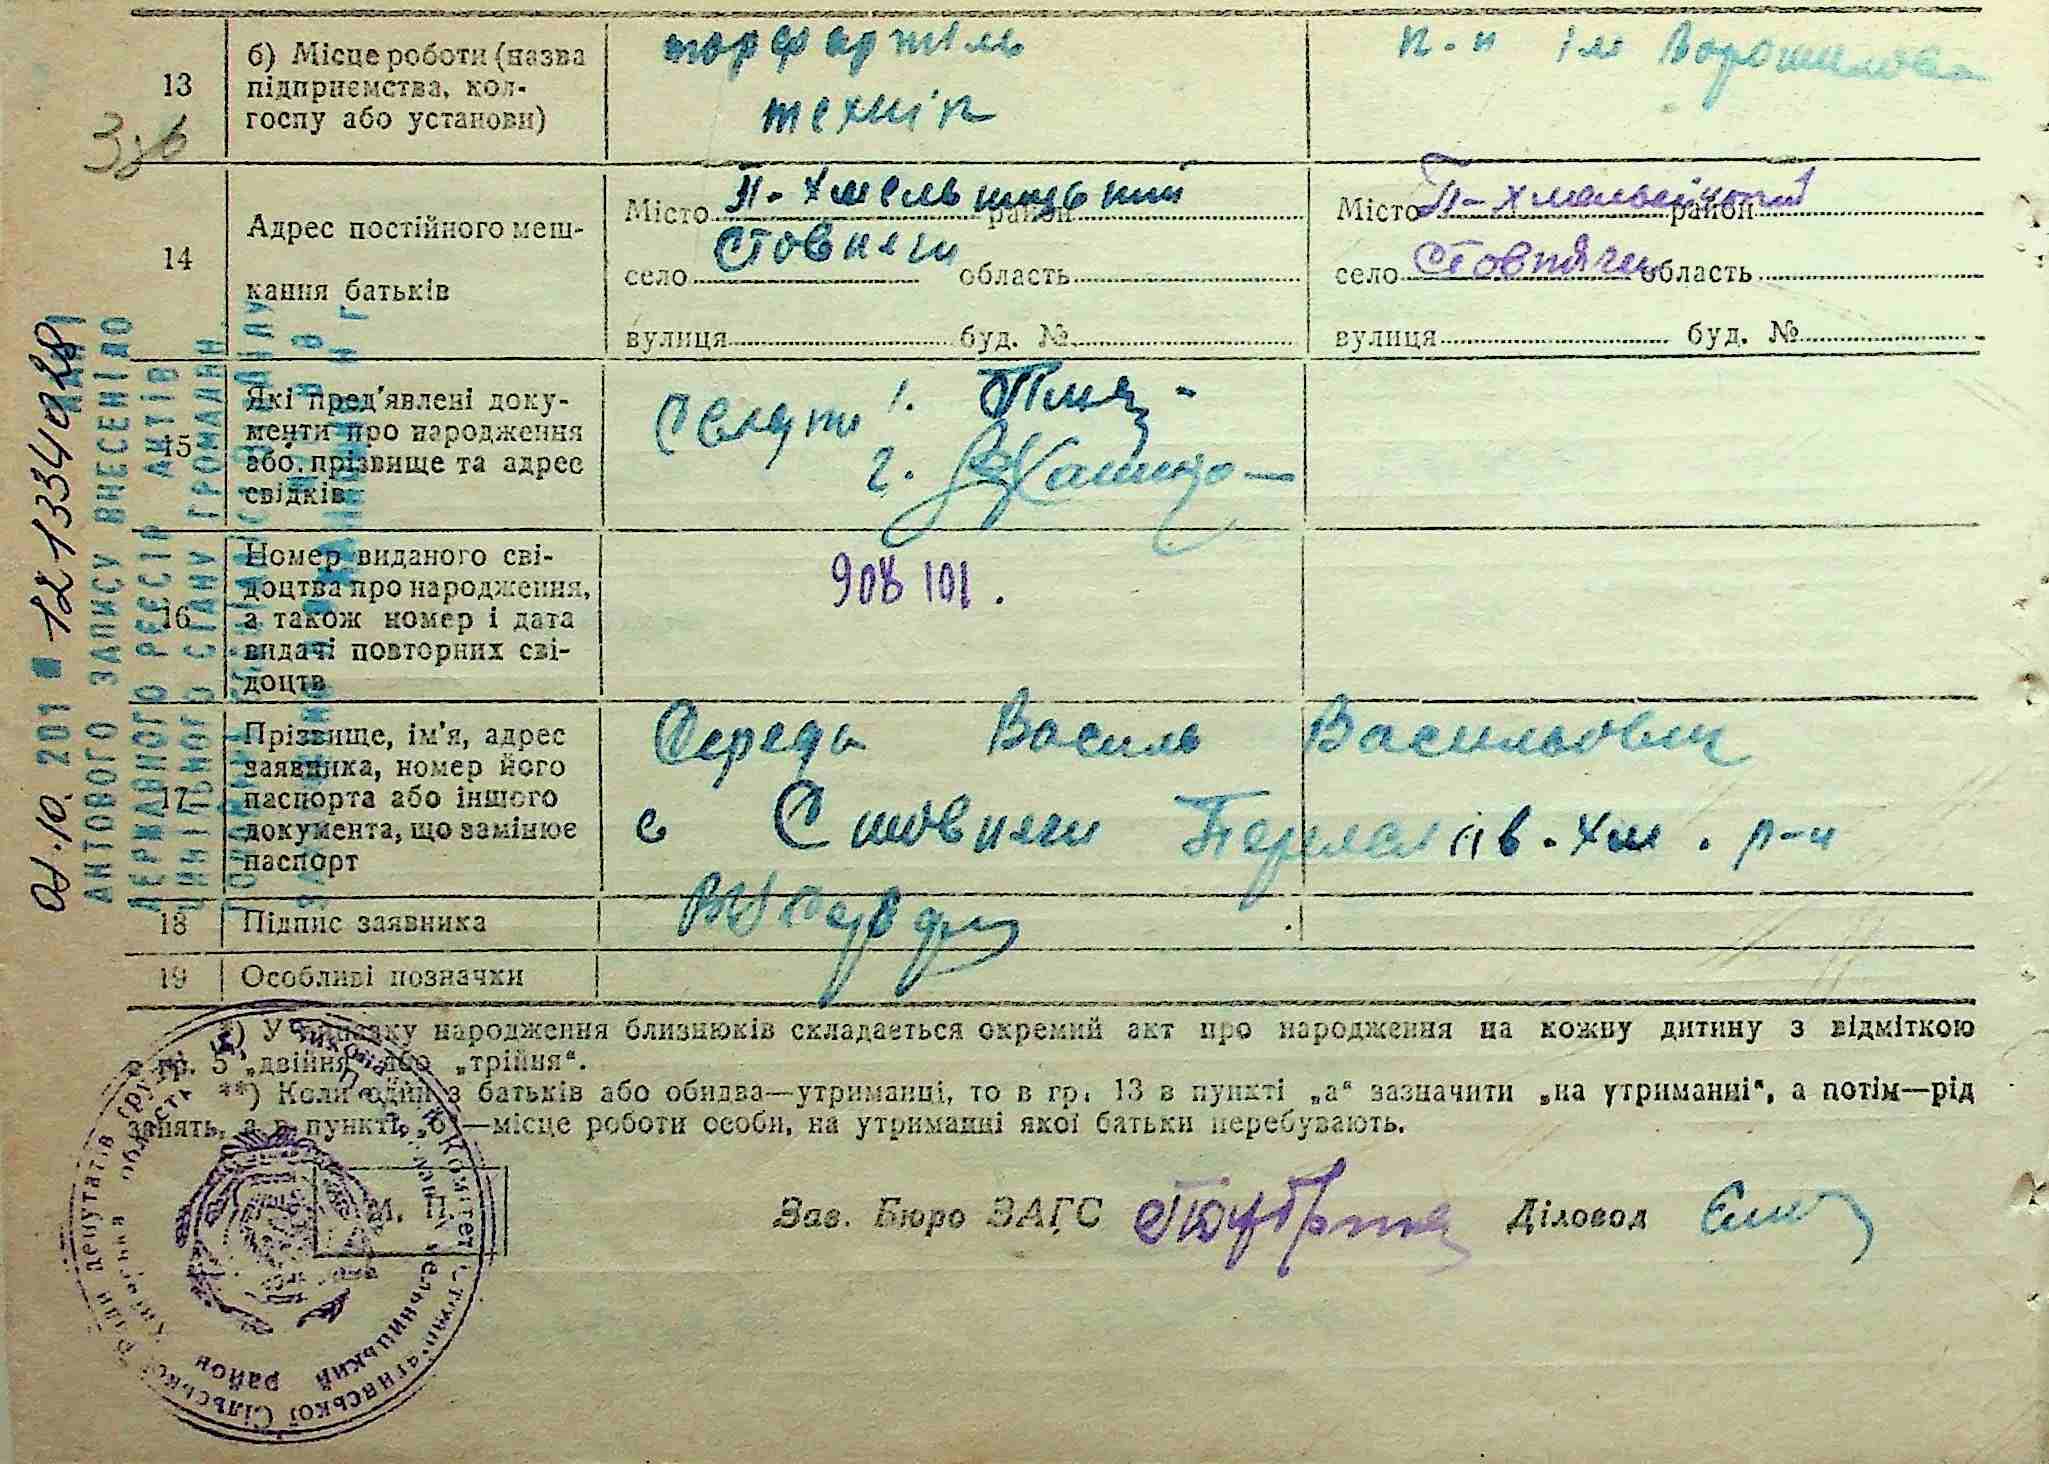 13
б) Місце роботи (назва
підприємства, кол-
госпу або установи)
торфартіль
технік
к-п ім Ворошилова
14
Адрес постійного меш-
кання батьків
Місто П-Хмельницький район
село Стовпяги область
вулиця буд. №
Місто П-Хмельницький район
село Стовпяги область
вулиця буд. №
15
Які пред'явлені доку-
менти про народження
або прізвище та адрес
свідків
1.
2.
16
Номер виданого сві-
доцтва про народження,
а також номер і дата
видачі повторних сві-
доцтв
908101.
17
Прізвище, ім'я, адрес
заявника, номер його
паспорта або іншого
документа, що замінює
паспорт
Середа Василь Васильович
с Стовпяги Переяслав-Хм. р-н
18
Підпис заявника
19
Особливі позначки
*) У випадку народження близнюків складається окремий акт про народження на кожну дитину з відміткою
в гр. 5 „двійня“ або „трійня“.
**) Коли один з батьків або обидва—утриманці, то в гр. 13 в пункті „а“ зазначити „на утриманні“, а потім—рід
занять, а в пункті „б“—місце роботи особи, на утриманні якої батьки перебувають.
М. П.
Зав. Бюро ЗАГС
Діловод
АКТОВОГО ЗАПИСУ ВНЕСЕНІ ДО
ДЕРЖАВНОГО РЕЄСТР АКТІВ
ЦИВІЛЬНОГО СТАНУ ГРОМАДЯН